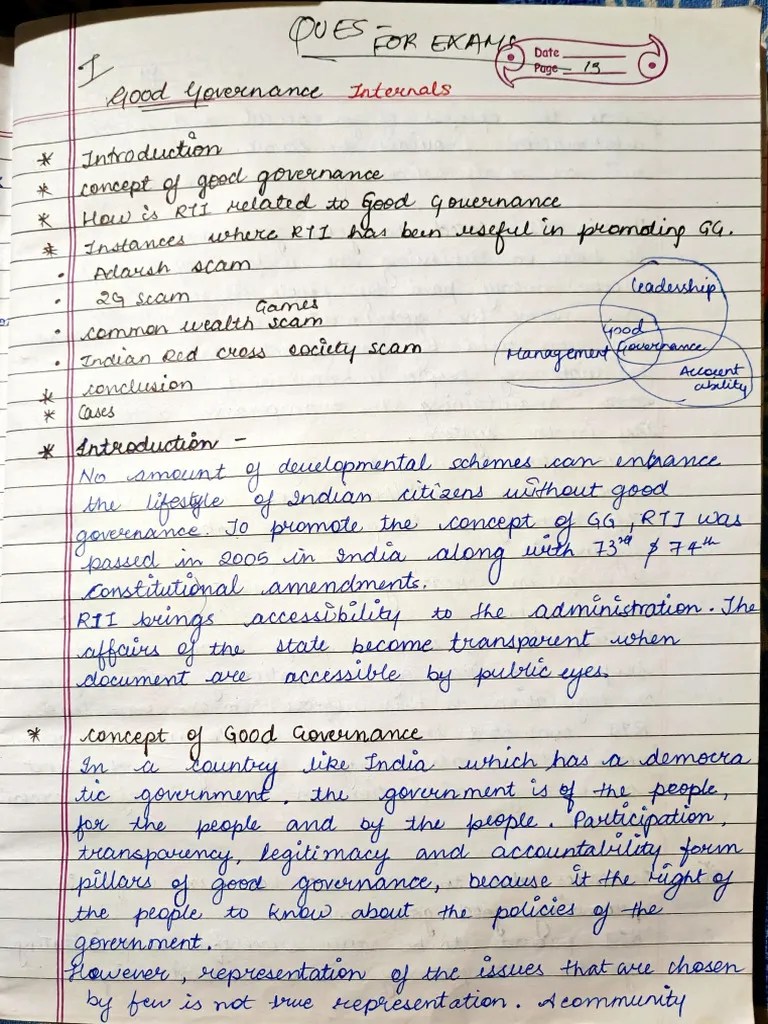 QUES - FOR EXAMS
Date
Page 15
I
Good Governance Internals
* Introduction
* concept of good governance
* How is RTI related to Good Governance
* Instances where RTI has been useful in promoting GG.
• Adarsh scam
• 2G scam
• common wealth Games scam
• Indian Red cross society scam
* conclusion
* Cases
Leadership
Good
Governance
Management
Account
ability
* Introduction -
No amount of developmental schemes can enhance
the lifestyle of Indian citizens without good
governance. To promote the concept of GG, RTI was
passed in 2005 in India along with 73rd & 74th
constitutional amendments.
RTI brings accessibility to the administration. The
affairs of the state become transparent when
document are accessible by public eyes.
* concept of Good Governance
In a country like India which has a democra
tic government. the government is of the people,
for the people and by the people. Participation,
transparency, legitimacy and accountability form
pillars of good governance, because it the right of
the people to know about the policies of the
government.
However, representation of the issues that are chosen
by few is not true representation. A community